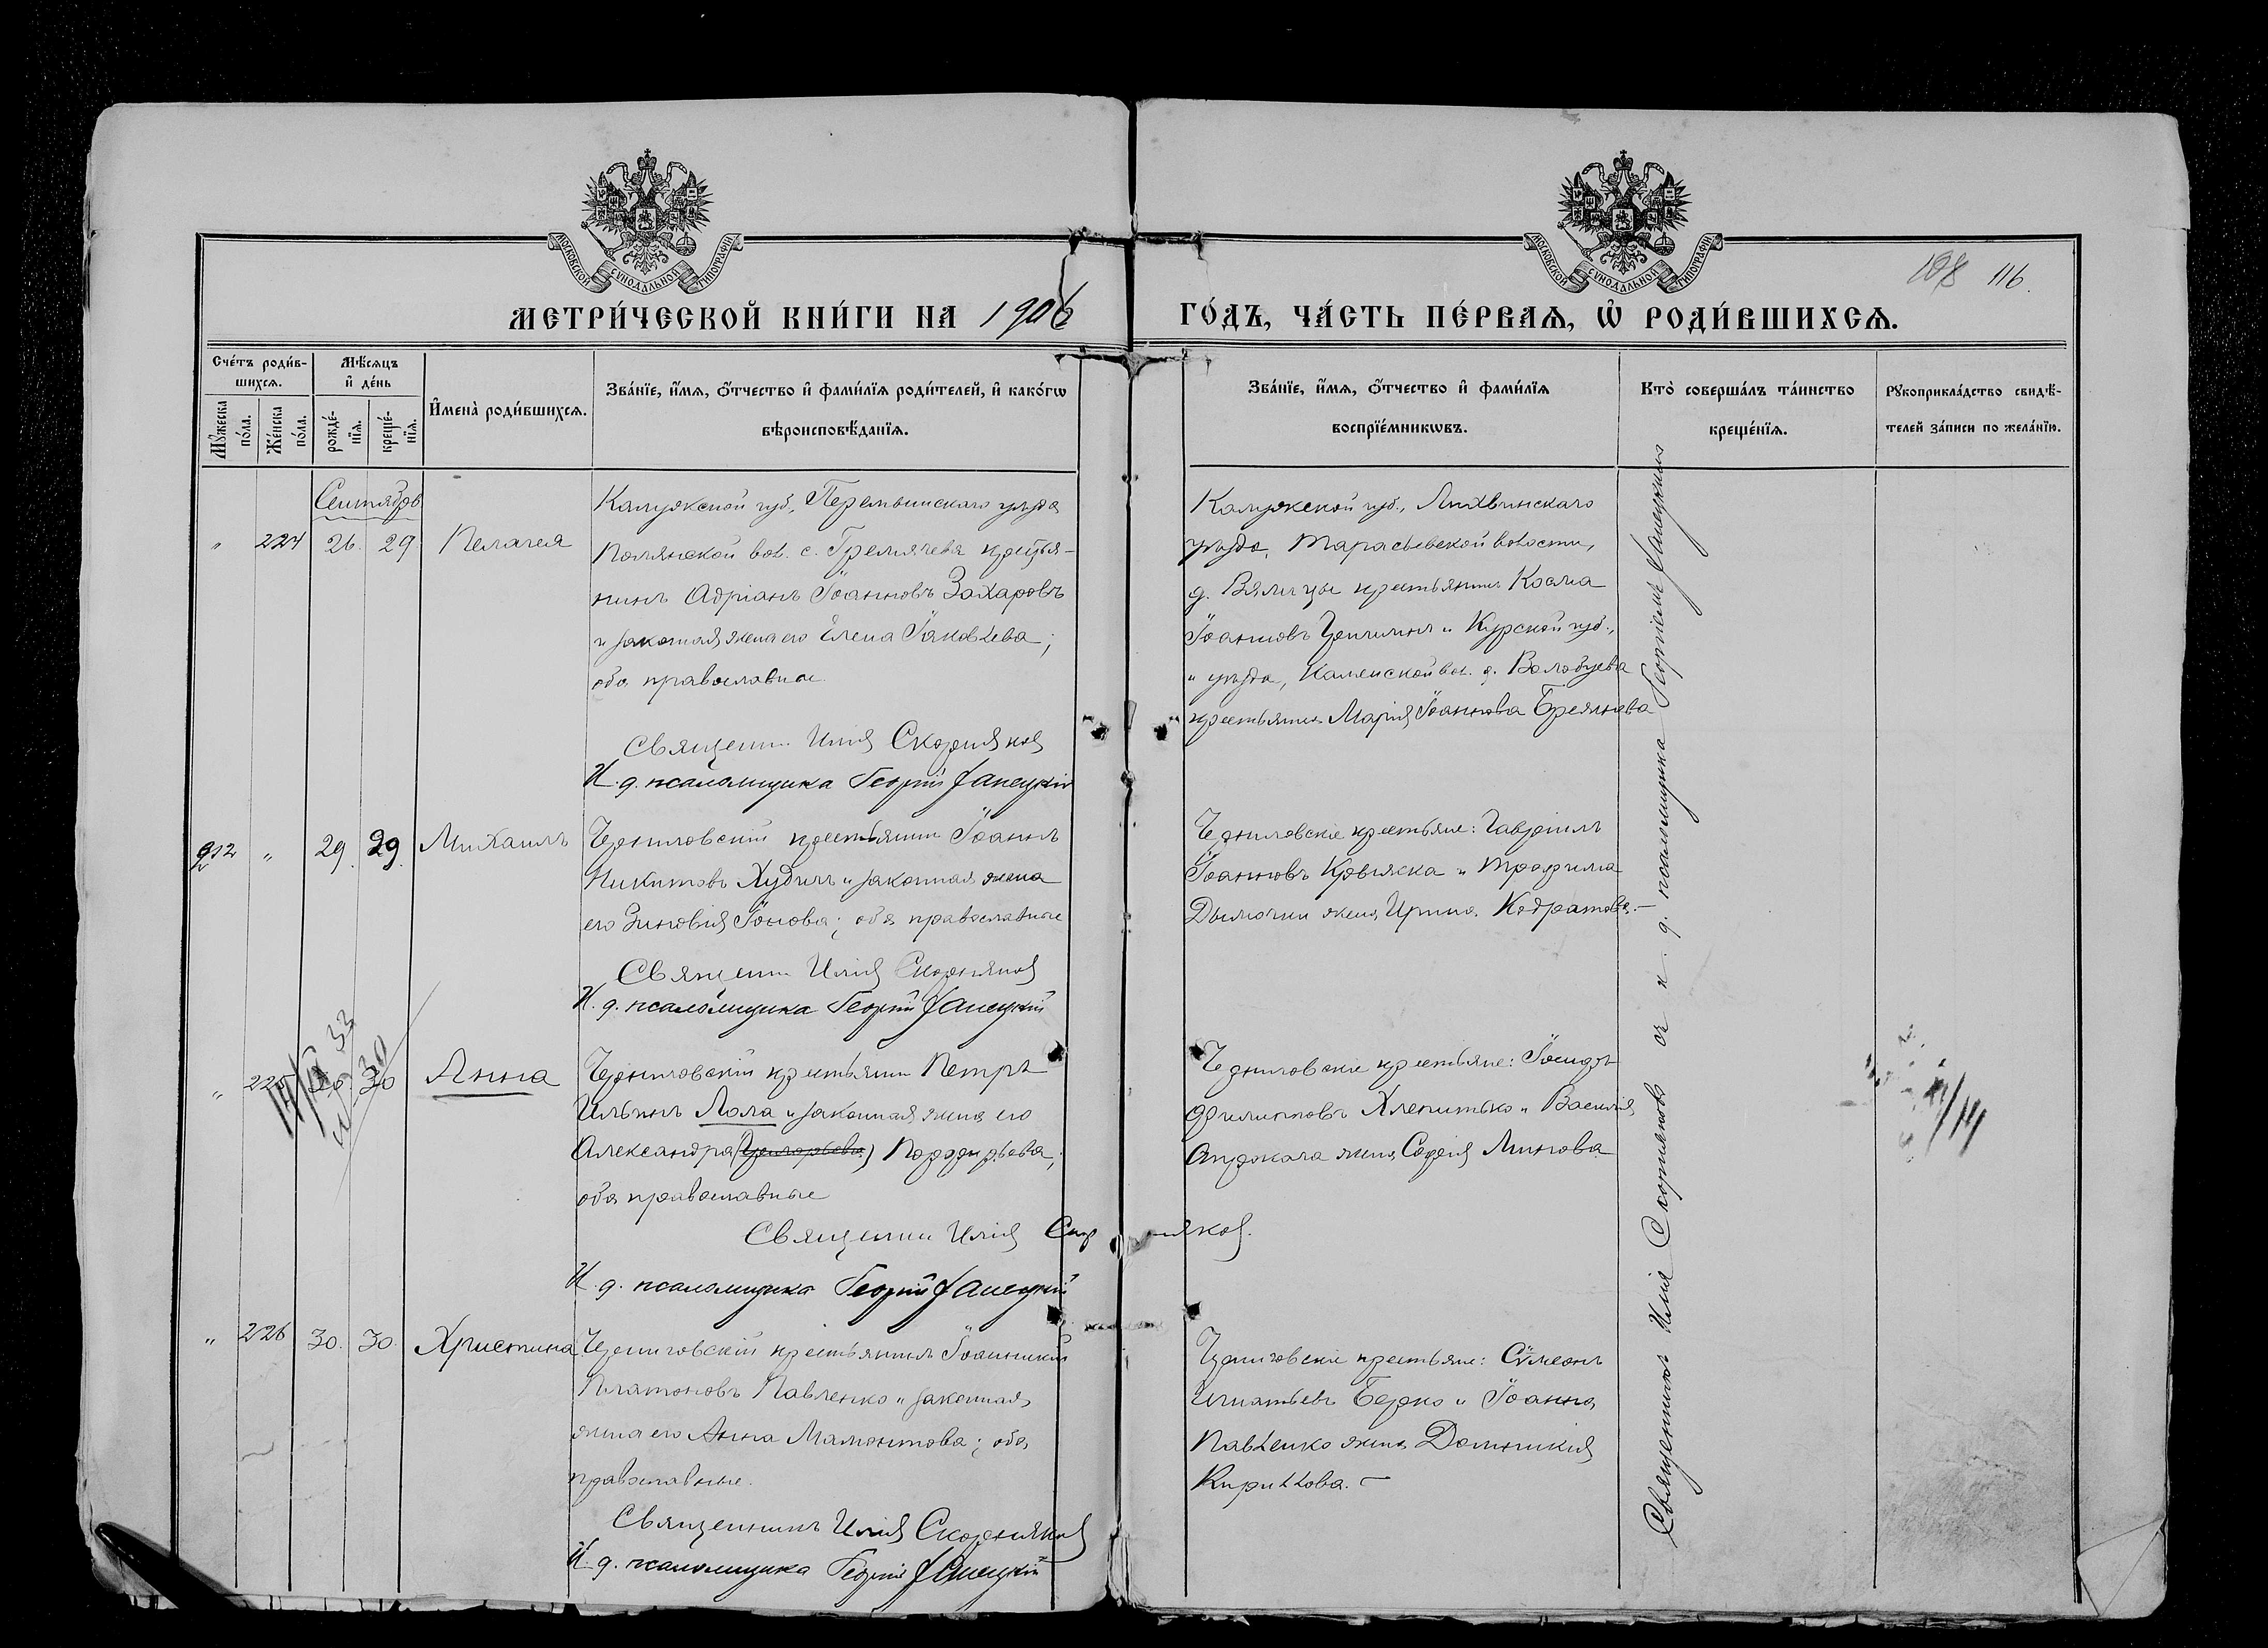 МОСКОВСКОЙ СѴНОДАЛЬНОЙ ТИПОГРАФІИ
МОСКОВСКОЙ СѴНОДАЛЬНОЙ ТИПОГРАФІИ
108 116.
МЕТРИ́ЧЕСКОЙ КНИ́ГИ НА 1906
ГО́ДЪ, ЧА́СТЬ ПЕ́РВАѦ, Ѡ҆ РОДИ́ВШИХСѦ.
Сче́тъ роди́в-
шихсѧ.
Мꙋ́жеска по́ла.
Же́нска по́ла.
Мѣ́сѧцъ
и҆ де́нь
рожде́-
нїѧ.
креще́-
нїѧ.
И҆мена̀ роди́вшихсѧ.
Зва́нїе, и҆́мѧ, ѻ҆́тчество и҆ фами́лїѧ роди́телей, и҆ како́гѡ
вѣроисповѣ́данїѧ.
Зва́нїе, и҆́мѧ, ѻ҆́тчество и҆ фами́лїѧ
воспрїе́мникѡвъ.
Кто̀ соверша́лъ та́инство
креще́нїѧ.
Рꙋкоприкла́дство свидѣ́-
телей за́писи по жела́нїю.
Сентябрь
" 224 26. 29. Пелагея
Калужской губ., Перемышльскаго уѣзда
Полянской вол. с. Гремячева крестья-
нинъ Адріанъ Іоанновъ Захаровъ
и законная жена его Елена Іаковлева;
оба православные
Священн. Илія Скорняков
И. д. псаломщика Георгій
Калужской губ., Лихвинскаго
уѣзда, Тарасьевской волости,
д. Вялицы крестьянинъ Косма
Іоанновъ и Курской губ.,
" уѣзда, Каменской вол. д. Волобуева
крестьянка Марія Іоаннова
212 " 29. 29. Михаилъ
Черниговскій крестьянин Іоаннъ
Никитовъ Худичъ и законная жена
его Зиновія Іонова; оба православные
Священн. Илія Скорняков
И. д. псаломщика Георгій
Черниговскіе крестьяне: Гавріилъ
Іоанновъ и Трофима
жена Ирина Кодратова.
" 225 30 Анна
Черниговскій крестьянин Петръ
Ильинъ Лола и законная жена его
Александра Порфирьева;
оба православные
Священник Илія Скорняков.
И. д. псаломщика Георгій
Черниговскіе крестьяне: Іосифъ
Филипповъ Хлепитько и Василія
жена София Минова
14
" 226 30. 30. Христина
Черниговскій крестьянинъ Іоанникій
Платоновъ Павленко и законная
жена его Анна Мамонтова; оба
православные.
Священникъ Илія Скорняков
И. д. псаломщика Георгій
Черниговскіе крестьяне: Сѵмеонъ
Игнатьевъ Берко и Іоанна
Павленко жена Домникія
Кириллова.
Священникъ Илія Скорняковъ съ и. д. псаломщика Георгіемъ